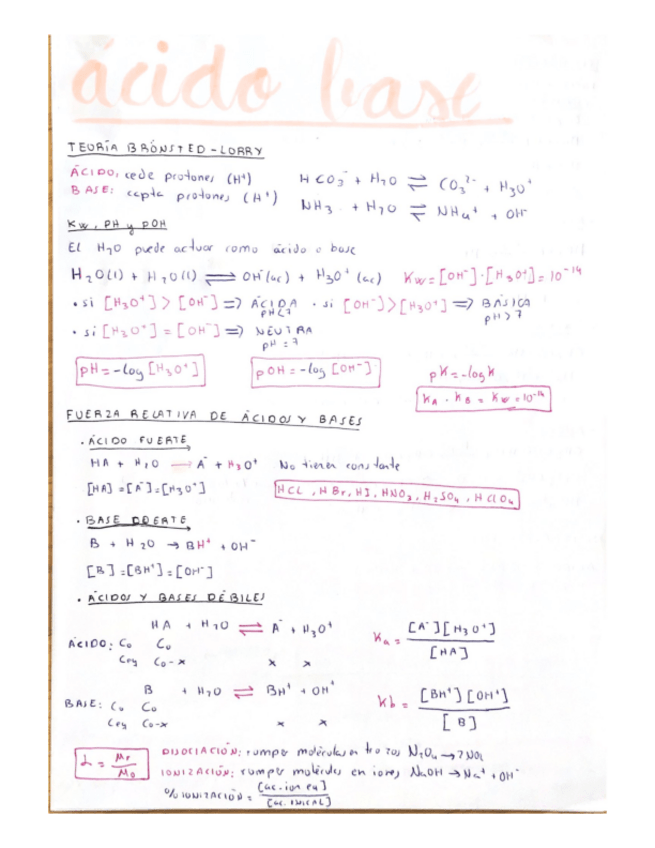 ácido base
TEORÍA BRÖNSTED-LORRY
ÁCIDO: cede protones (H⁺)
BASE: capta protones (H⁺)
HCO₃⁻ + H₂O ⇌ CO₃²⁻ + H₃O⁺
NH₃ + H₂O ⇌ NH₄⁺ + OH⁻
Kw, PH y POH
El H₂O puede actuar como ácido o base
H₂O(l) + H₂O(l) ⇌ OH⁻(ac) + H₃O⁺(ac) Kw = [OH⁻]·[H₃O⁺] = 10⁻¹⁴
• si [H₃O⁺] > [OH⁻] => ÁCIDA pH<7 • si [OH⁻] > [H₃O⁺] => BÁSICA pH>7
• si [H₃O⁺] = [OH⁻] => NEUTRA pH=7
pH = -log [H₃O⁺] pOH = -log [OH⁻] pK = -log K
KA · KB = Kw = 10⁻¹⁴
FUERZA RELATIVA DE ÁCIDOS Y BASES
• ÁCIDO FUERTE
HA + H₂O → A⁻ + H₃O⁺ No tienen constante
[HA] = [A⁻] = [H₃O⁺] HCL, HBr, HI, HNO₃, H₂SO₄, HClO₄
• BASE
B + H₂O → BH⁺ + OH⁻
[B] = [BH⁺] = [OH⁻]
• ÁCIDOS Y BASES DÉBILES
HA + H₂O ⇌ A⁻ + H₃O⁺ Ka = [A⁻][H₃O⁺] / [HA]
ÁCIDO: Co Co
Ceq Co-x x x
B + H₂O ⇌ BH⁺ + OH⁻ Kb = [BH⁺][OH⁻] / [B]
BASE: Co Co
Ceq Co-x x x
α = Mr / Mo
DISOCIACIÓN: romper moléculas en trozos N₂O₄ → 2NO₂
IONIZACIÓN: romper moléculas en iones NaOH → Na⁺ + OH⁻
% IONIZACIÓN = [ac. ion eq] / [ac. INICIAL]